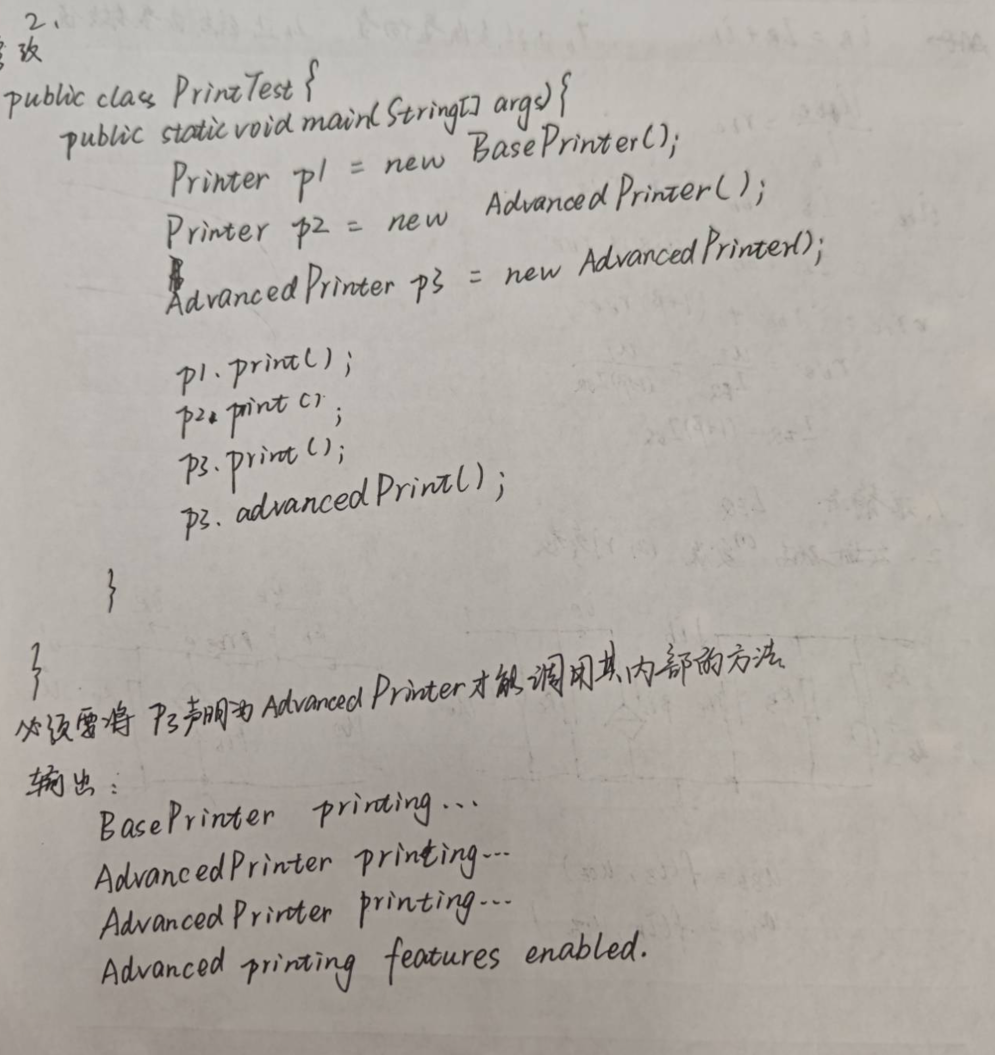 2.
改
public class PrintTest {
public static void main(String[] args) {
Printer p1 = new BasePrinter();
Printer p2 = new AdvancedPrinter();
AdvancedPrinter p3 = new AdvancedPrinter();
p1.print();
p2.print();
p3.print();
p3.advancedPrint();
}
}
必须要将 P3声明为 AdvancedPrinter才能调用其内部的方法
输出：
BasePrinter printing...
AdvancedPrinter printing...
AdvancedPrinter printing...
Advanced printing features enabled.